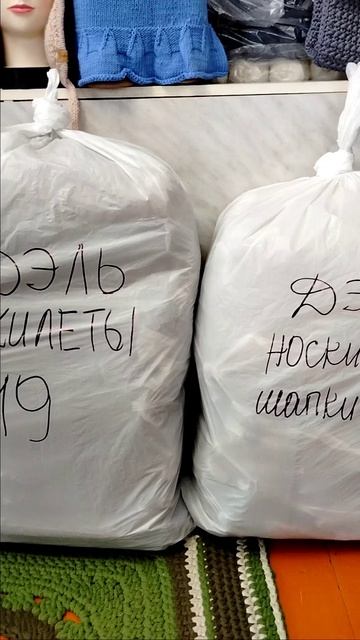 ДЭЛЬ
ЖИЛЕТЫ
19
ДЭ
НОСКИ
шапки